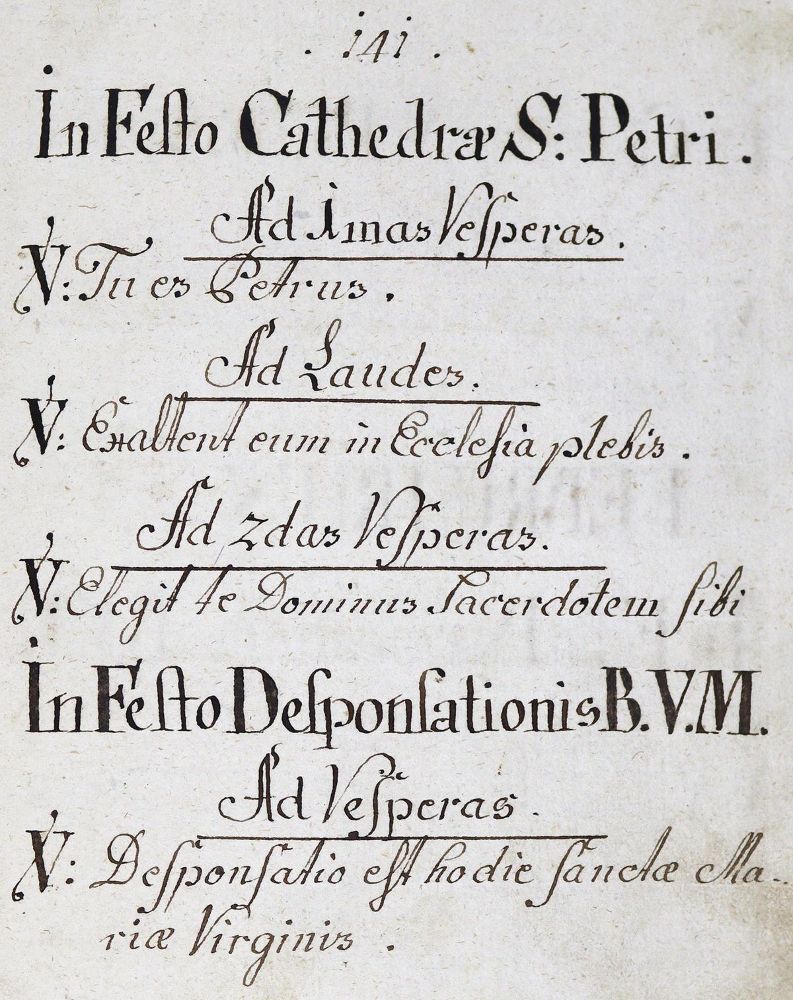 . 141 .
In Feſto Cathedræ S: Petri.
Ad 1mas Veſperas.
℣: Tu es Petrus.
Ad Laudes.
℣: Exaltent eum in Eccleſia plebis.
Ad 2das Veſperas.
℣: Elegit te Dominus Sacerdotem ſibi
In Feſto Deſponſationis B.V.M.
Ad Veſperas.
℣: Deſponſatio eſt hodie ſanctæ Ma-
riæ Virginis.